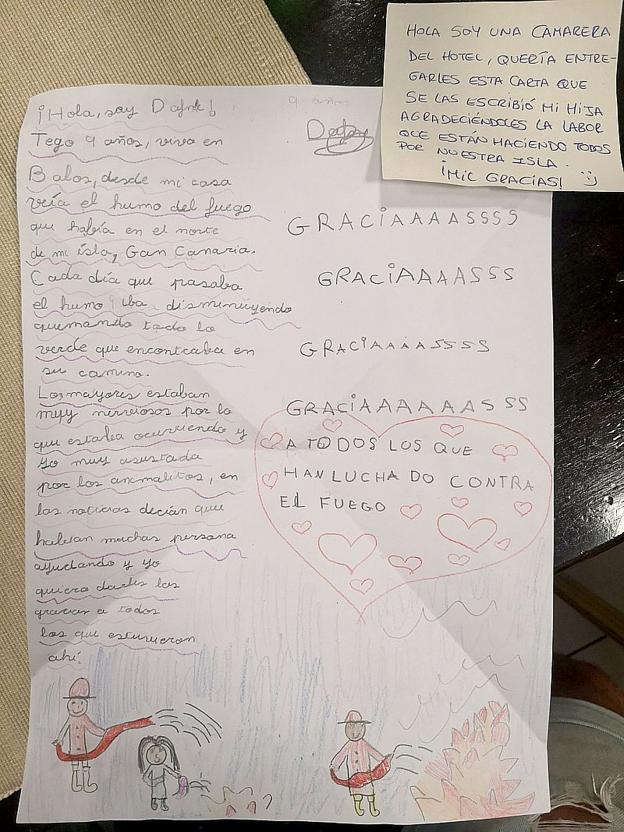 HOLA SOY UNA CAMARERA
DEL HOTEL, QUERÍA ENTRE-
GARLES ESTA CARTA QUE
SE LAS ESCRIBIÓ MI HIJA
AGRADECIÉNDOLES LA LABOR
QUE ESTÁN HACIENDO TODOS
POR NUESTRA ISLA.
¡MIL GRACIAS! :)
¡Hola, soy Dafne!
Tego 9 años, vivo en
Balos, desde mi casa
veía el humo del fuego
que había en el norte
de mi isla, Gan Canaria.
Cada día que pasaba
el humo iba disminuyendo
quemando todo lo
verde que encontraba en
su camino.
Los mayores estaban
muy nerviosos por lo
que estaba ocurriendo y
yo muy asustada
por los animalitos, en
las noticias decían que
habían muchas persona
ayudando y yo
quiero darles las
gracias a todos
los que estuvieron
ahí.
9 años
GRACiAAAASSSS
GRACiAAAASSS
GRACiAAAASSSS
GRACiAAAAAASSSS
A TODOS LOS QUE
HAN LUCHADO CONTRA
EL FUEGO